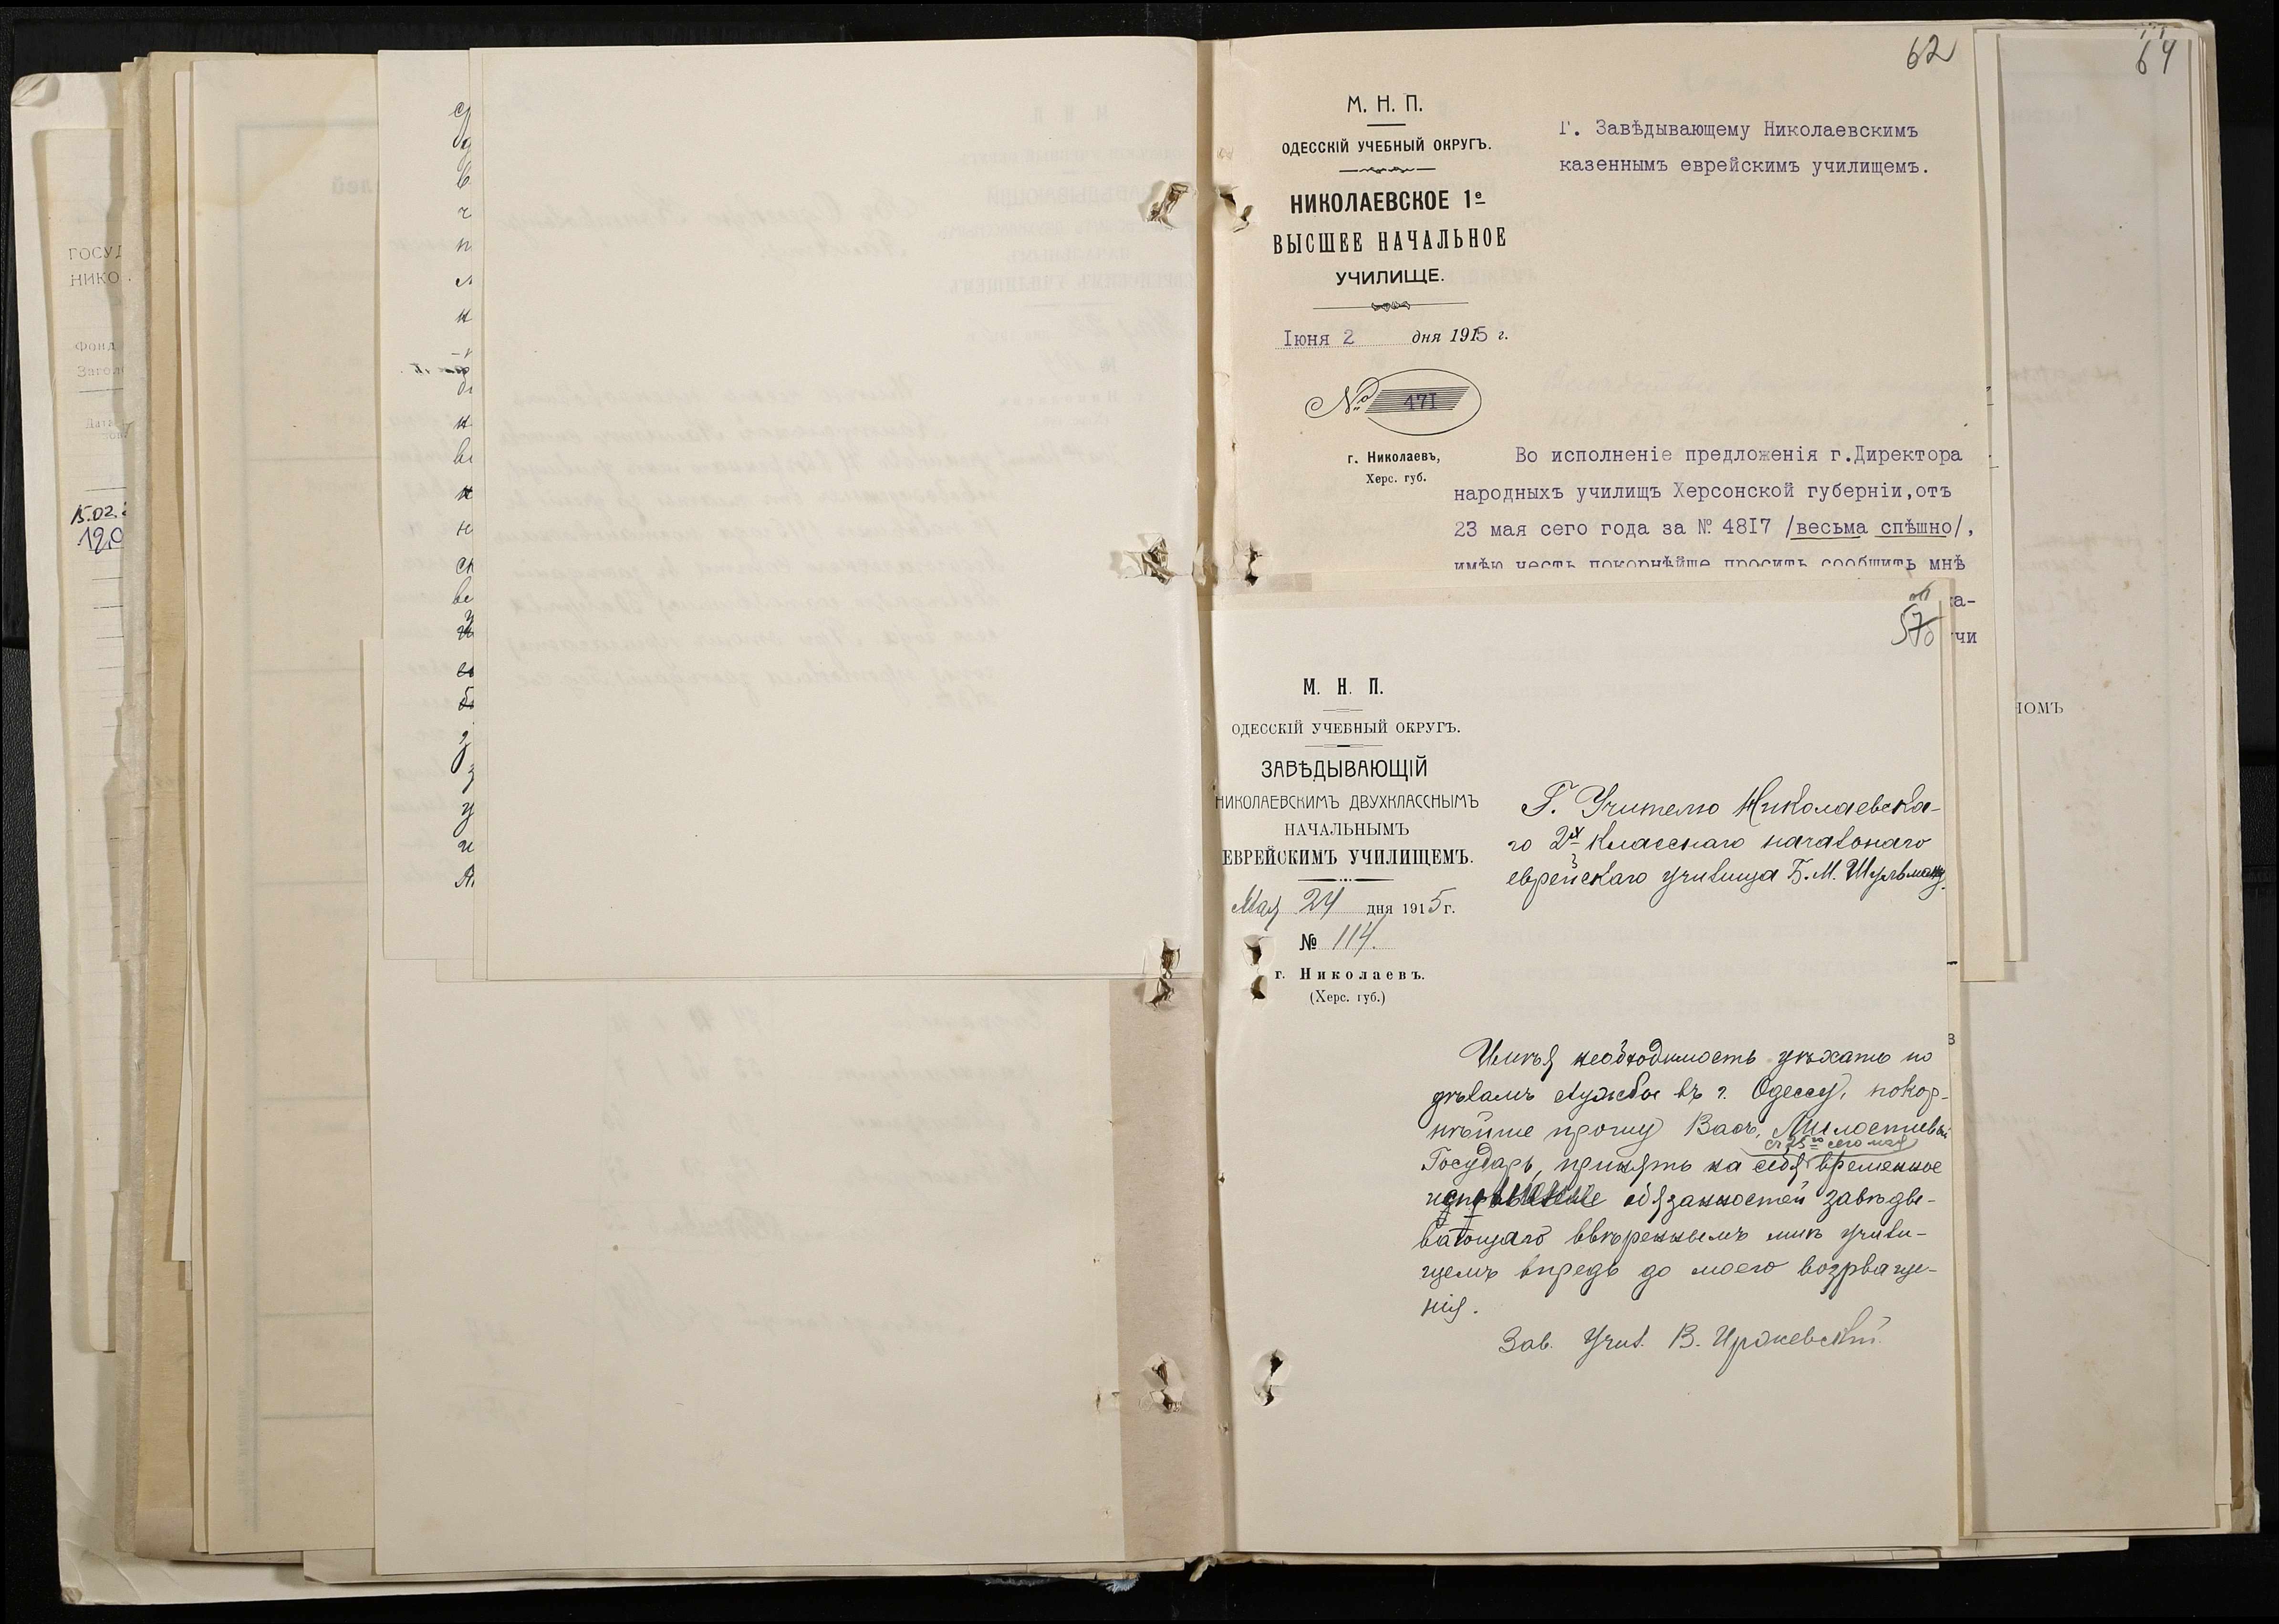 62
64
М. Н. П.
ОДЕССКІЙ УЧЕБНЫЙ ОКРУГЪ.
НИКОЛАЕВСКОЕ 1е
ВЫСШЕЕ НАЧАЛЬНОЕ
УЧИЛИЩЕ.
Іюня 2 дня 1915 г.
№ 471
г. Николаевъ,
Херс. губ.
Г. Завѣдывающему Николаевскимъ
казеннымъ еврейскимъ училищемъ.
Во исполненіе предложенія г.Директора
народныхъ училищъ Херсонской губерніи,отъ
23 мая сего года за № 48I7 /весьма спѣшно/,
имѣю честь покорнѣйше просить сообщить мнѣ
ка-
чи
57
М. Н. П.
ОДЕССКІЙ УЧЕБНЫЙ ОКРУГЪ.
ЗАВѢДЫВАЮЩІЙ
НИКОЛАЕВСКИМЪ ДВУХКЛАССНЫМЪ
НАЧАЛЬНЫМЪ
ЕВРЕЙСКИМЪ УЧИЛИЩЕМЪ.
Мая 24 дня 1915 г.
№ 114.
г. Николаевъ.
(Херс. губ.)
Г. Учителю Николаевска-
го 2х класснаго начальнаго
еврейскаго училища Б. М. Шульману.
Имѣя необходимость уѣхать по
дѣламъ службы въ г. Одессу, покор-
нѣйше прошу Васъ, Милостивый
съ 25го сего мая
Государь, принять на себя временное
исполненіе обязанностей завѣды-
вающаго ввѣреннымъ мнѣ учили-
щемъ впредь до моего возрваще-
нія.
Зав. Учил. В. Иржевскій.
ГОСУД
НИКО
Фонд
Загол
Дата
15.02.
НОМЪ